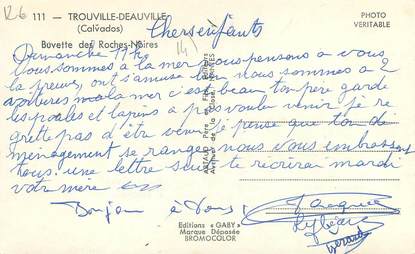 R6
111 — TROUVILLE-DEAUVILLE
(Calvados)
Buvette des Roches-Noires
PHOTO
VERITABLE
Chers enfants
Dimanche 11h
Nous sommes a la mer nous pensons a vous
la preuve, ont s'amuse bien nous sommes a 2
voitures mala mer c'est beau ton père garde
les poules et lapins a pas voulu venir je re
grette pas d'être venir je pense que ton de
ménagement se rangea nous vous embrassons
tous une lettre suit te récrirai mardi
votre mere
Bonjour à vous
Jacques
Gérard
ARTAUD Père et Fils, Editeurs
NANTES
Editions "GABY"
Marque Déposée
BROMOCOLOR